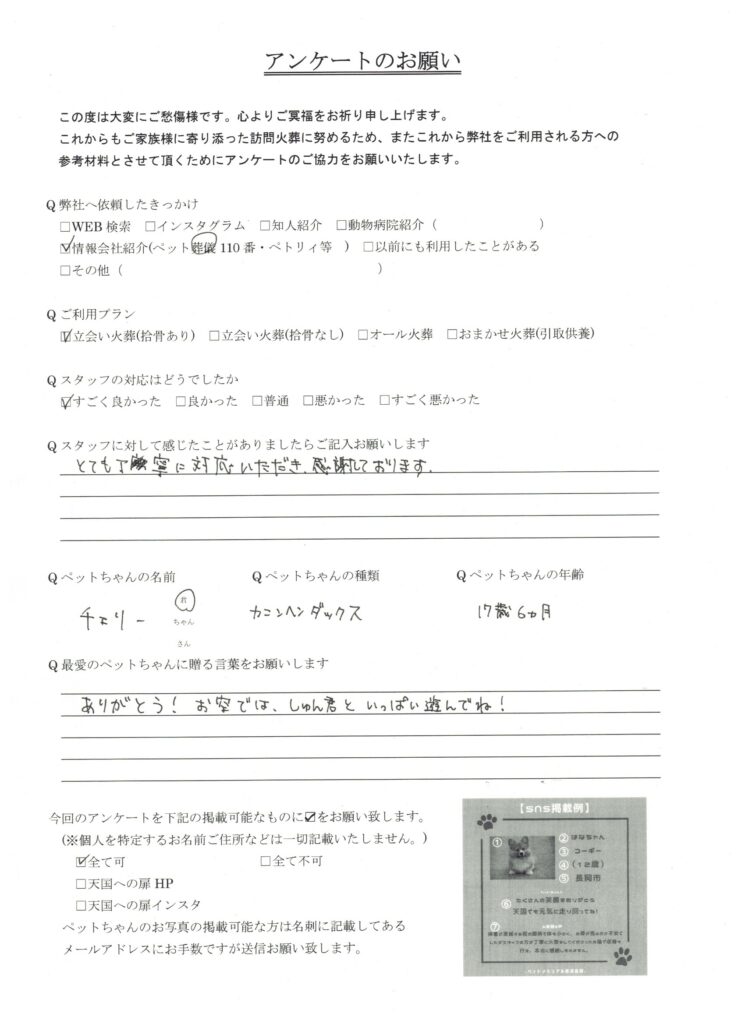 アンケートのお願い
この度は大変にご愁傷様です。心よりご冥福をお祈り申し上げます。
これからもご家族様に寄り添った訪問火葬に努めるため、またこれから弊社をご利用される方への
参考材料とさせて頂くためにアンケートのご協力をお願いいたします。
Q 弊社へ依頼したきっかけ
□WEB 検索 □インスタグラム □知人紹介 □動物病院紹介（ ）
☑情報会社紹介(ペット葬儀 110 番・ペトリィ等 ) □以前にも利用したことがある
□その他（ ）
Q ご利用プラン
☑立会い火葬(拾骨あり) □立会い火葬(拾骨なし) □オール火葬 □おまかせ火葬(引取供養)
Q スタッフの対応はどうでしたか
☑すごく良かった □良かった □普通 □悪かった □すごく悪かった
Q スタッフに対して感じたことがありましたらご記入お願いします
とても丁寧に対応いただき、感謝しております。
Q ペットちゃんの名前 Q ペットちゃんの種類 Q ペットちゃんの年齢
チェリー 君 カニンヘンダックス 17歳6ヵ月
ちゃん
さん
Q 最愛のペットちゃんに贈る言葉をお願いします
ありがとう！ お空では、しゅん君といっぱい遊んでね！
今回のアンケートを下記の掲載可能なものに☑をお願い致します。
(※個人を特定するお名前ご住所などは一切記載いたしません。)
☑全て可 □全て不可
□天国への扉 HP
□天国への扉インスタ
ペットちゃんのお写真の掲載可能な方は名刺に記載してある
メールアドレスにお手数ですが送信お願い致します。
【sns掲載例】
① ② はなちゃん
③ コーギー
④ (12歳)
⑤ 長岡市
⑥ たくさんの笑顔をありがとう
天国でも元気に走り回ってね!
⑦